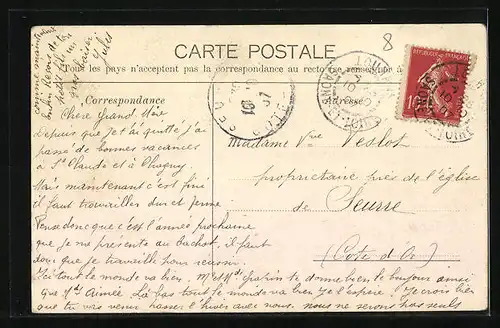 comme maintenant
8
CARTE POSTALE
Tous les pays n'acceptent pas la correspondance au recto (se renseigner à
RÉPUBLIQUE FRANÇAISE
10
Correspondance
Adresse
Chère Grand Mère
depuis que je t'ai quitté j'ai
passé de bonnes vacances
à St Claude et à Chagny.
Mais maintenant c'est fini
il faut travailler dur et ferme
Pense donc que c'est l'année prochaine
que je me présente au bachot. il faut
donc que je travaille pour réussir.
Ici tout le monde va bien. Mr et Mde te donne bien le bonjour ainsi
que Mde Aimée. Là bas tout le monde va bien je l'espère. Je crois bien
que tu vas venir passer l'hiver avec nous. nous ne serons pas seuls
Madame Vve Veslot
propriétaire près de l'église
de Seurre
(Côte d'Or)
SEURRE